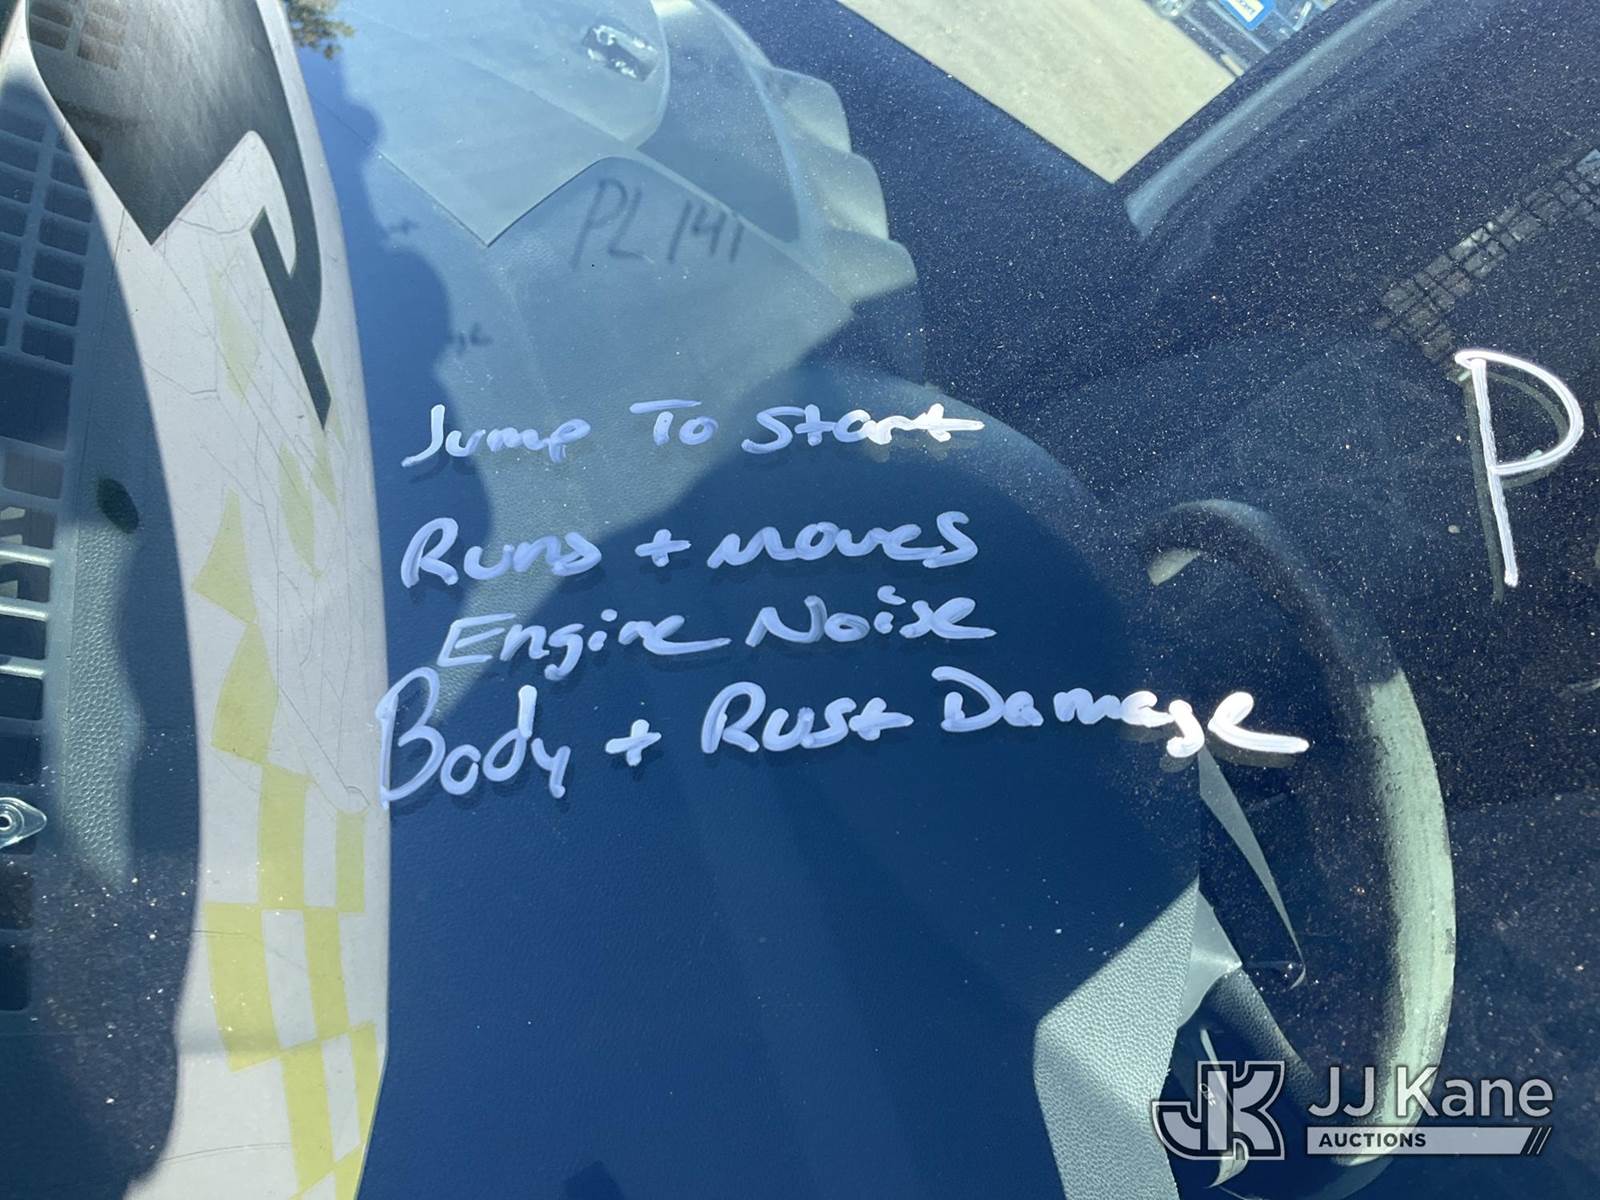 PL 141
Jump To Start
Runs + moves
Engine Noise
Body + Rust Damage
P
JK JJ Kane
AUCTIONS